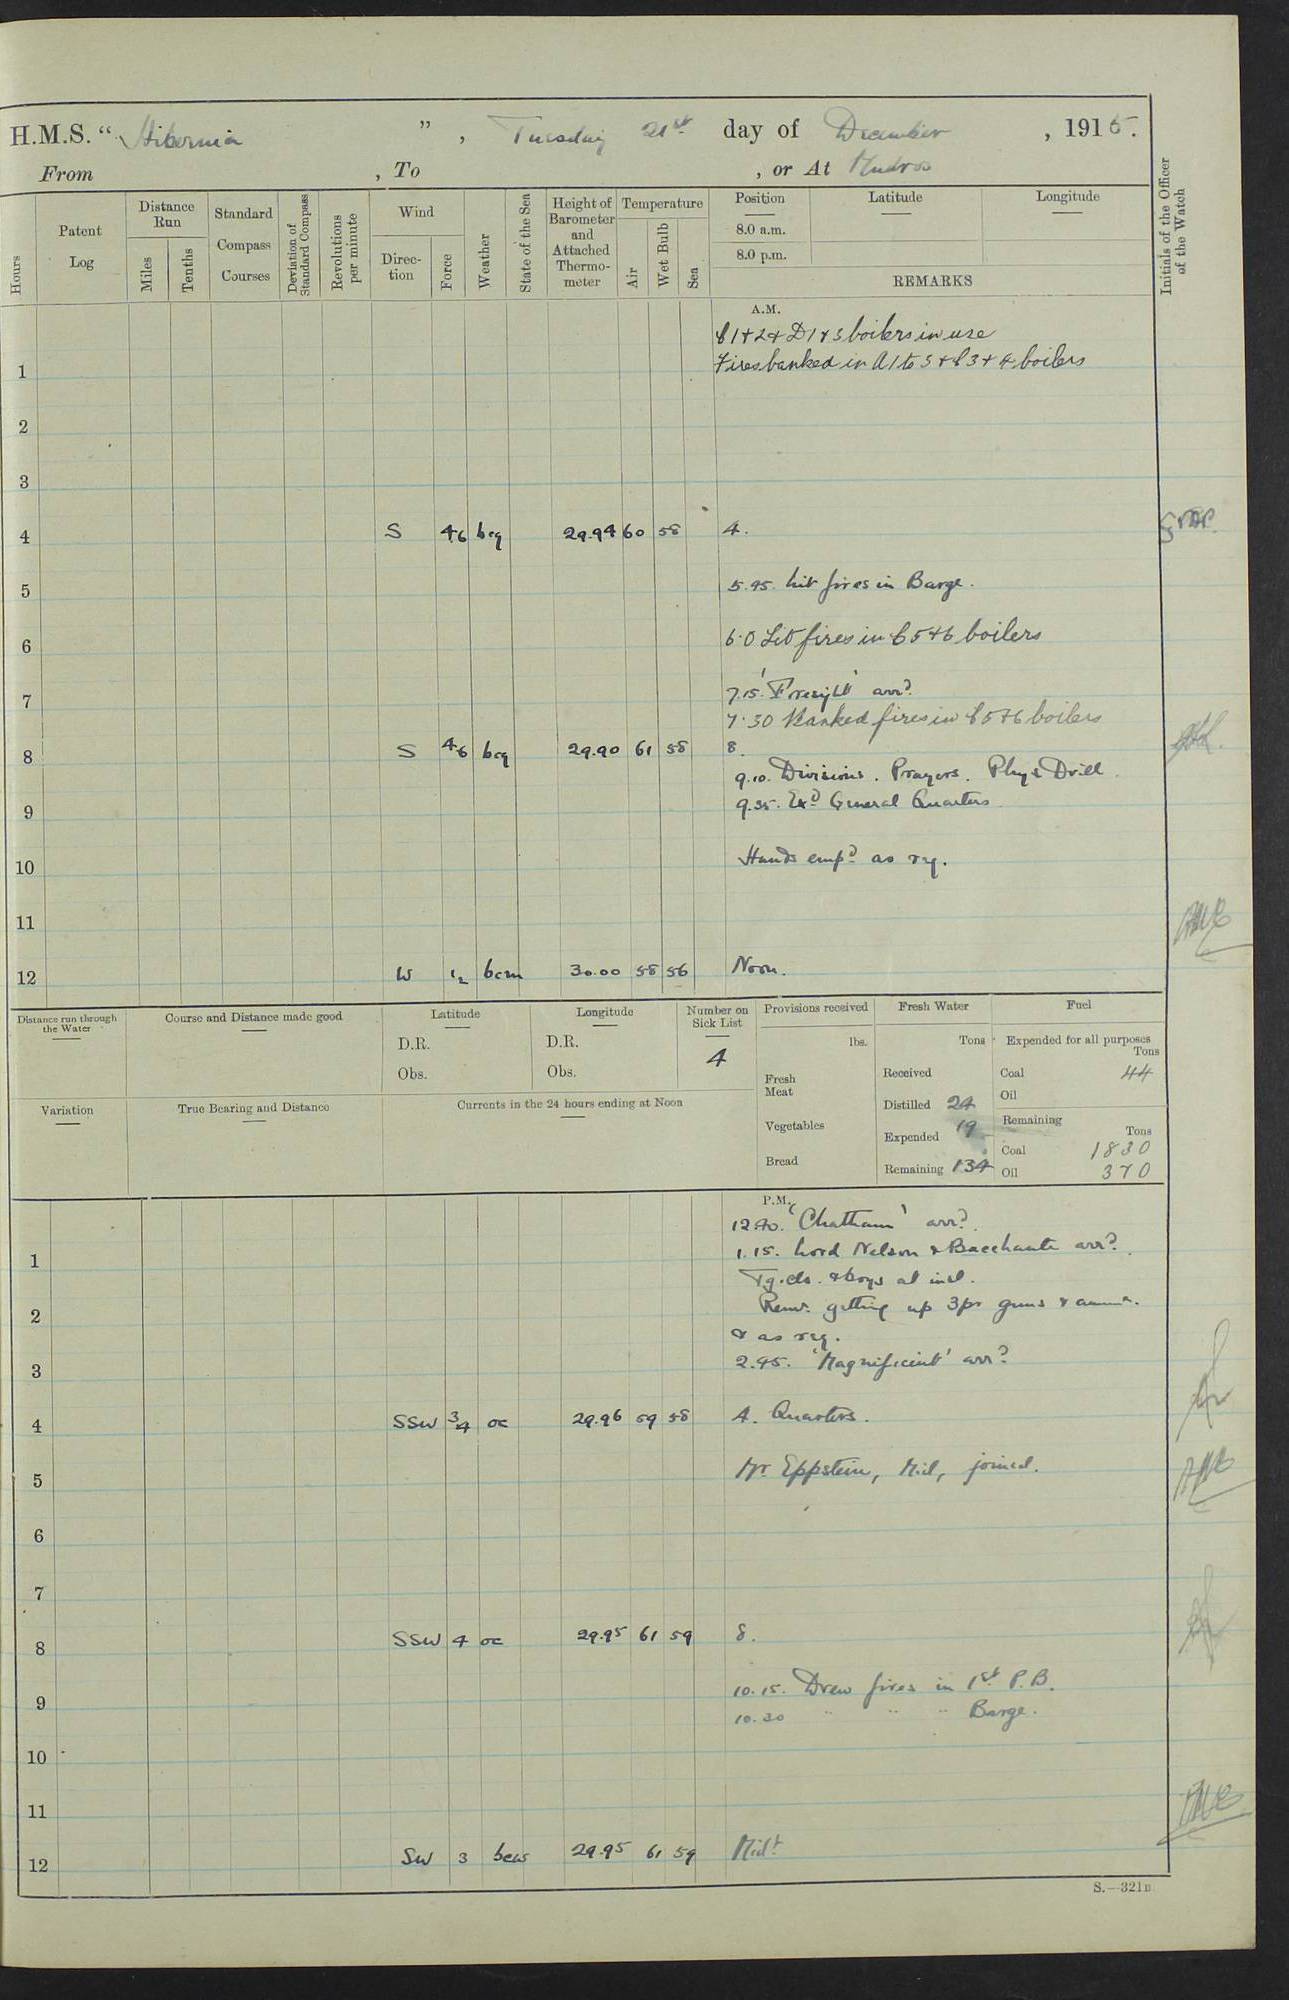 H.M.S. “Hibernia”, Tuesday 21st day of December, 1915.
From , To , or At Mudros
Hours
Patent Log
Distance Run
Miles
Tenths
Standard Compass Courses
Deviation of Standard Compass
Revolutions per minute
Wind
Direction
Force
Weather
State of the Sea
Height of Barometer and Attached Thermometer
Temperature
Air
Wet Bulb
Sea
Position
8.0 a.m.
8.0 p.m.
Latitude
Longitude
REMARKS
Initials of the Officer of the Watch
A.M.
1 + 2 + D 1 + 3 boilers in use
1 Fires banked in A 1 to 3 + 3 + 4 boilers
2
3
4 S 4-6 bcq 29.94 60 58 4.
5 5.45. Lit fires in Barge.
6 6.0 Lit fires in 5 + 6 boilers
7 7.15. 'Foresight' arrd.
7.30 Banked fires in 5 + 6 boilers
8 S 4-6 bcq 29.90 61 58 8.
9.10. Divisions. Prayers. Phys: Drill.
9 9.35. Exd General Quarters
10 Hands empd as req.
11
12 W 1-2 bcm 30.00 58 56 Noon.
Distance run through the Water
Course and Distance made good
Latitude
D.R.
Obs.
Longitude
D.R.
Obs.
Number on Sick List
4
Provisions received
lbs.
Fresh Meat
Vegetables
Bread
Fresh Water
Tons
Received
Distilled 24
Expended 19
Remaining 134
Fuel
Expended for all purposes
Tons
Coal 44
Oil
Remaining
Tons
Coal 1830
Oil 370
Variation
True Bearing and Distance
Currents in the 24 hours ending at Noon
P.M.
12.40. 'Chatham' arrd.
1 1.15. Lord Nelson & Bacchante arrd.
Tg. cls. & boys at inst.
2 Remr. getting up 3pr guns & ammn.
& as req.
3 2.45. 'Magnificent' arrd.
4 SSW 3-4 oc 29.96 59 58 4. Quarters.
5 Mr Eppstein, Mid, joined.
6
7
8 SSW 4 oc 29.95 61 59 8.
9 10.15. Drew fires in 1st P.B.
10.30 " " " Barge.
10
11
12 SW 3 29.95 61 59 Midt
S.—321B.